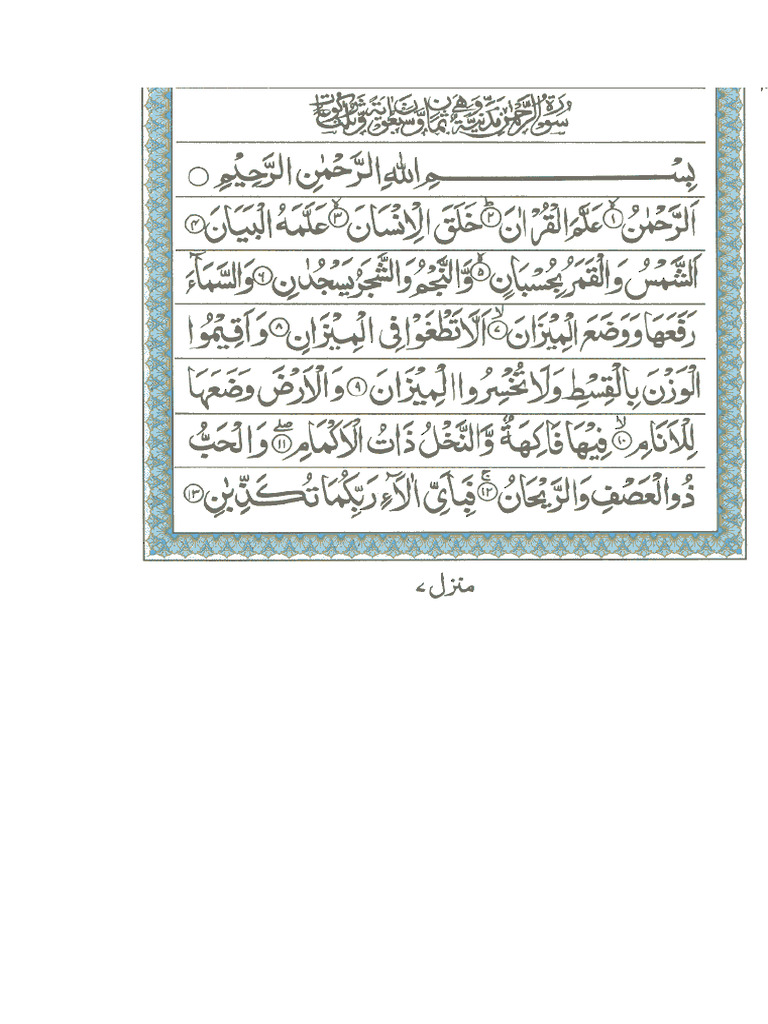 سُوْرَةُ الرَّحْمٰنِ مَدَنِيَّةٌ وَّهِىَ ثَمَانٌ وَّسَبْعُوْنَ اٰيَةً وَّثَلٰثُ رُكُوْعَاتٍ
بِسْــــــــــــــــمِ اللّٰهِ الرَّحْمٰنِ الرَّحِيْمِ ○
اَلرَّحْمٰنُ ۙ﴿۱﴾ عَلَّمَ الْقُرْاٰنَ ؕ﴿۲﴾ خَلَقَ الْاِنْسَانَ ۙ﴿۳﴾ عَلَّمَهُ الْبَيَانَ ﴿۴﴾
اَلشَّمْسُ وَالْقَمَرُ بِحُسْبَانٍ ۙ﴿۵﴾ وَّالنَّجْمُ وَالشَّجَرُ يَسْجُدٰنِ ﴿۶﴾ وَالسَّمَآءَ
رَفَعَهَا وَوَضَعَ الْمِيْزَانَ ۙ﴿۷﴾ اَلَّا تَطْغَوْا فِى الْمِيْزَانِ ﴿۸﴾ وَاَقِيْمُوا
الْوَزْنَ بِالْقِسْطِ وَلَا تُخْسِرُوا الْمِيْزَانَ ﴿۹﴾ وَالْاَرْضَ وَضَعَهَا
لِلْاَنَامِ ۙ﴿۱۰﴾ فِيْهَا فَاكِهَةٌ ۪ۙ وَّالنَّخْلُ ذَاتُ الْاَكْمَامِ ۖ﴿۱۱﴾ وَالْحَبُّ
ذُو الْعَصْفِ وَالرَّيْحَانُ ۚ﴿۱۲﴾ فَبِاَىِّ اٰلَآءِ رَبِّكُمَا تُكَذِّبٰنِ ﴿۱۳﴾
منزل ۷